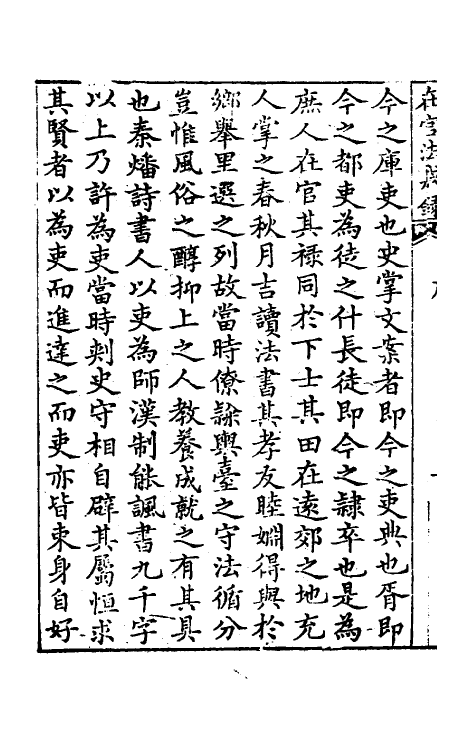 在官法戒錄
今之庫吏也史掌文案者即今之吏典也胥即
今之都吏為徒之什長徒即今之隸卒也是為
庶人在官其祿同於下士其田在遠郊之地充
人掌之春秋月吉讀法書其孝友睦婣得與於
鄉舉里選之列故當時僚隸輿臺之守法循分
豈惟風俗之醇抑上之人教養成就之有其具
也秦燔詩書人以吏為師漢制能諷書九千字
以上乃許為吏當時刺史守相自辟其屬恒求
其賢者以為吏而進達之而吏亦皆束身自好